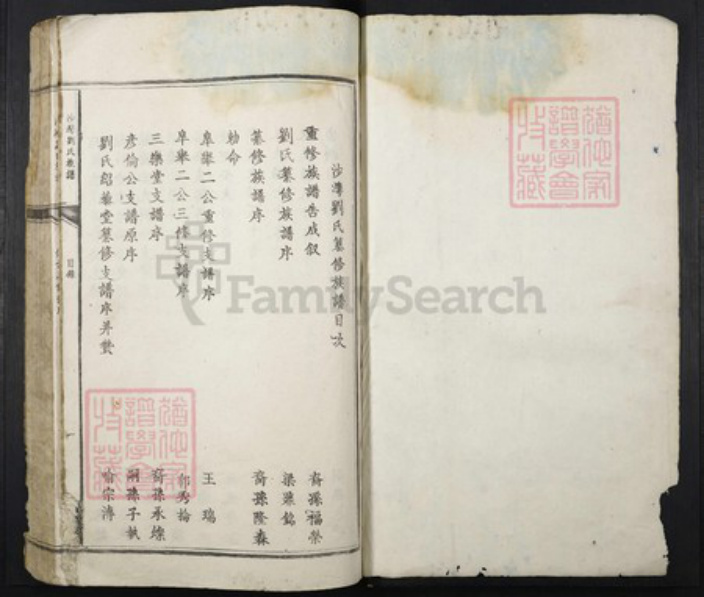 沙灣劉氏纂修族譜目次
重修族譜告成叙 裔孫福榮
劉氏纂修族譜序 梁鼎銘
纂修族譜序 裔孫隆森
勅命
阜舉二公重修支譜序 王瑞
阜舉二公三修支譜序 郭秀掄
三樂堂支譜序 裔孫承燦
彥倫公支譜原序 嗣孫子執
劉氏紹義堂纂修支譜序并贊 喻宗溥
劉氏族譜
目錄
猶他家譜學會收藏
猶他家譜學會收藏
FamilySearch